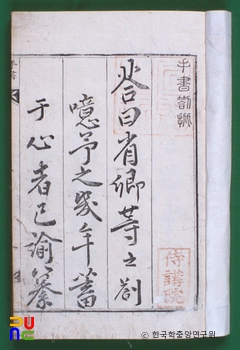 手書
答曰省卿等之劄
噫予之幾年蓄
于心者已諭纂
侍講院
© 한국학중앙연구원